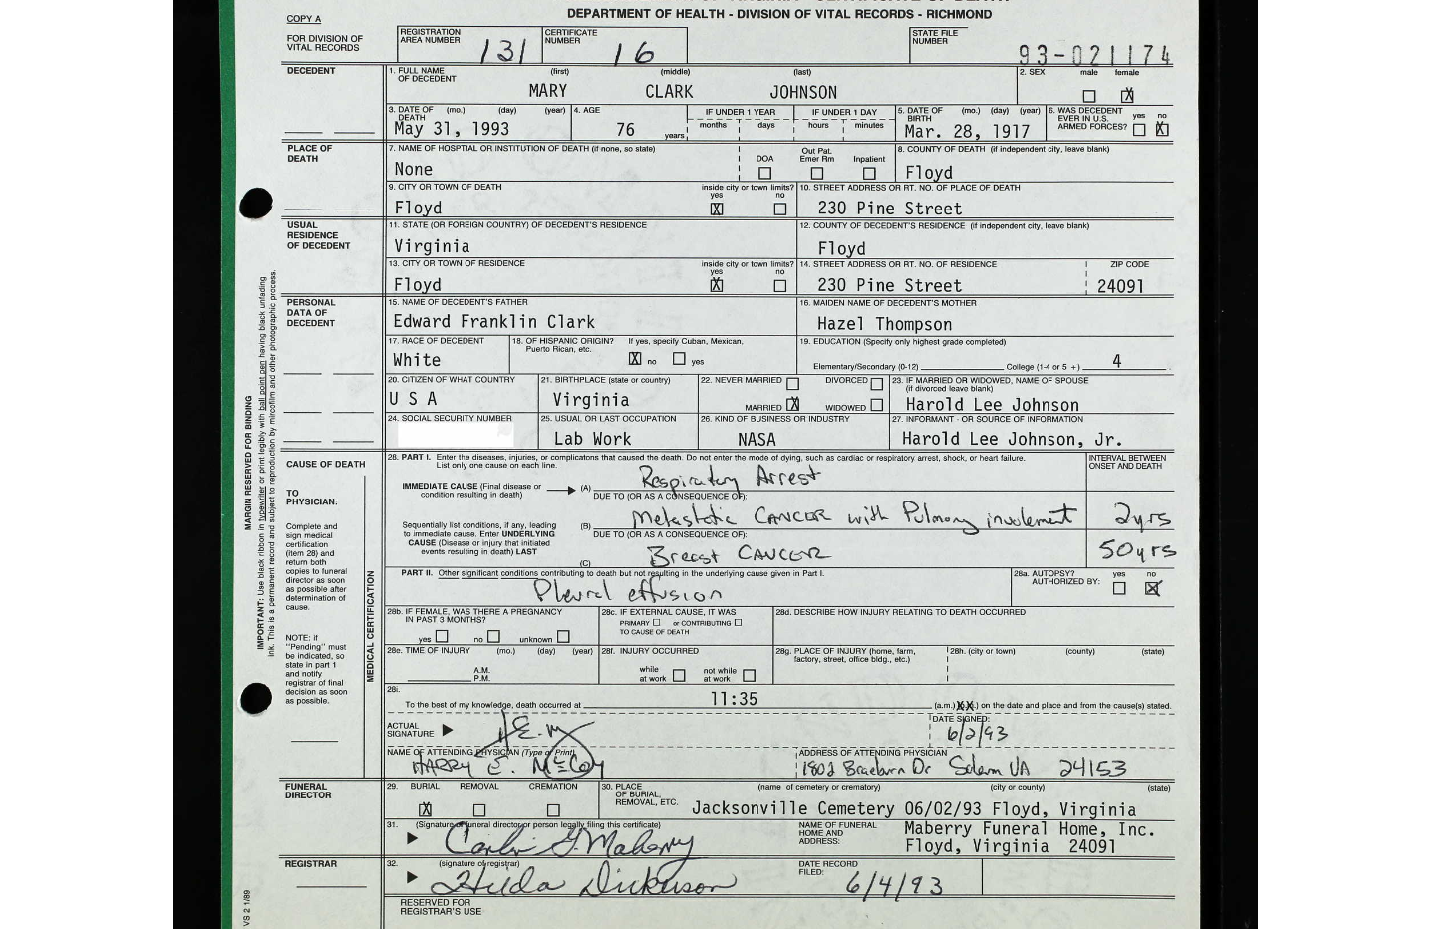 COPY A
DEPARTMENT OF HEALTH - DIVISION OF VITAL RECORDS - RICHMOND
FOR DIVISION OF VITAL RECORDS
REGISTRATION AREA NUMBER 131
CERTIFICATE NUMBER 16
STATE FILE NUMBER 93-021174
DECEDENT
1. FULL NAME OF DECEDENT (first) (middle) (last)
MARY CLARK JOHNSON
2. SEX male female X
3. DATE OF DEATH (mo.) (day) (year)
May 31, 1993
4. AGE 76 years
IF UNDER 1 YEAR months days
IF UNDER 1 DAY hours minutes
5. DATE OF BIRTH (mo.) (day) (year)
Mar. 28, 1917
6. WAS DECEDENT EVER IN U.S. ARMED FORCES? yes no X
PLACE OF DEATH
7. NAME OF HOSPITAL OR INSTITUTION OF DEATH (if none, so state)
None
DOA Out Pat. Emer Rm Inpatient
8. COUNTY OF DEATH (if independent city, leave blank)
Floyd
9. CITY OR TOWN OF DEATH
Floyd
inside city or town limits? yes X no
10. STREET ADDRESS OR RT. NO. OF PLACE OF DEATH
230 Pine Street
USUAL RESIDENCE OF DECEDENT
11. STATE (OR FOREIGN COUNTRY) OF DECEDENT'S RESIDENCE
Virginia
12. COUNTY OF DECEDENT'S RESIDENCE (if independent city, leave blank)
Floyd
13. CITY OR TOWN OF RESIDENCE
Floyd
inside city or town limits? yes X no
14. STREET ADDRESS OR RT. NO. OF RESIDENCE
230 Pine Street
ZIP CODE
24091
PERSONAL DATA OF DECEDENT
15. NAME OF DECEDENT'S FATHER
Edward Franklin Clark
16. MAIDEN NAME OF DECEDENT'S MOTHER
Hazel Thompson
17. RACE OF DECEDENT
White
18. OF HISPANIC ORIGIN? If yes, specify Cuban, Mexican, Puerto Rican, etc.
X no yes
19. EDUCATION (Specify only highest grade completed)
Elementary/Secondary (0-12) College (1-4 or 5 +) 4
20. CITIZEN OF WHAT COUNTRY
U S A
21. BIRTHPLACE (state or country)
Virginia
22. NEVER MARRIED DIVORCED
MARRIED X WIDOWED
23. IF MARRIED OR WIDOWED, NAME OF SPOUSE (if divorced leave blank)
Harold Lee Johnson
24. SOCIAL SECURITY NUMBER
25. USUAL OR LAST OCCUPATION
Lab Work
26. KIND OF BUSINESS OR INDUSTRY
NASA
27. INFORMANT - OR SOURCE OF INFORMATION
Harold Lee Johnson, Jr.
CAUSE OF DEATH
28. PART I. Enter the diseases, injuries, or complicatons that caused the death. Do not enter the mode of dying, such as cardiac or respiratory arrest, shock, or heart failure.
List only one cause on each line.
INTERVAL BETWEEN ONSET AND DEATH
IMMEDIATE CAUSE (Final disease or condition resulting in death) (A) Respiratory Arrest
DUE TO (OR AS A CONSEQUENCE OF):
Sequentially list conditions, if any, leading to immediate cause. Enter UNDERLYING CAUSE (Disease or injury that initiated events resulting in death) LAST
(B) Metastatic CANCER with Pulmonary involvement 2yrs
DUE TO (OR AS A CONSEQUENCE OF):
(C) Breast CANCER 50yrs
TO PHYSICIAN.
Complete and sign medical certification (item 28) and return both copies to funeral director as soon as possible after determination of cause.
NOTE: if "Pending" must be indicated, so state in part 1 and notify registrar of final decision as soon as possible.
MEDICAL CERTIFICATION
PART II. Other significant conditions contributing to death but not resulting in the underlying cause given in Part I.
Pleural effusion
28a. AUTOPSY? AUTHORIZED BY: yes no X
28b. IF FEMALE, WAS THERE A PREGNANCY IN PAST 3 MONTHS?
yes no unknown
28c. IF EXTERNAL CAUSE, IT WAS
PRIMARY or CONTRIBUTING
TO CAUSE OF DEATH
28d. DESCRIBE HOW INJURY RELATING TO DEATH OCCURRED
28e. TIME OF INJURY (mo.) (day) (year)
A.M.
P.M.
28f. INJURY OCCURRED
while at work not while at work
28g. PLACE OF INJURY (home, farm, factory, street, office bldg., etc.)
28h. (city or town) (county) (state)
28i.
To the best of my knowledge, death occurred at 11:35 (a.m.) on the date and place and from the cause(s) stated.
ACTUAL SIGNATURE
DATE SIGNED:
6/2/93
NAME OF ATTENDING PHYSICIAN (Type or Print)
HARRY E. McCoy
ADDRESS OF ATTENDING PHYSICIAN
1802 Braeburn Dr Salem VA 24153
FUNERAL DIRECTOR
29. BURIAL REMOVAL CREMATION
X
30. PLACE OF BURIAL, REMOVAL, ETC. (name of cemetery or crematory) (city or county) (state)
Jacksonville Cemetery 06/02/93 Floyd, Virginia
31. (Signature of funeral director or person legally filing this certificate)
NAME OF FUNERAL HOME AND ADDRESS:
Maberry Funeral Home, Inc.
Floyd, Virginia 24091
REGISTRAR
32. (signature of registrar)
Hilda Dickerson
DATE RECORD FILED:
6/4/93
RESERVED FOR REGISTRAR'S USE
MARGIN RESERVED FOR BINDING
IMPORTANT: Use black ribbon in typewriter or print legibly with ball point pen having black unfading
ink. This is a permanent record and subject to reproduction by mircofilm and other photographic process.
VS 2 1/89